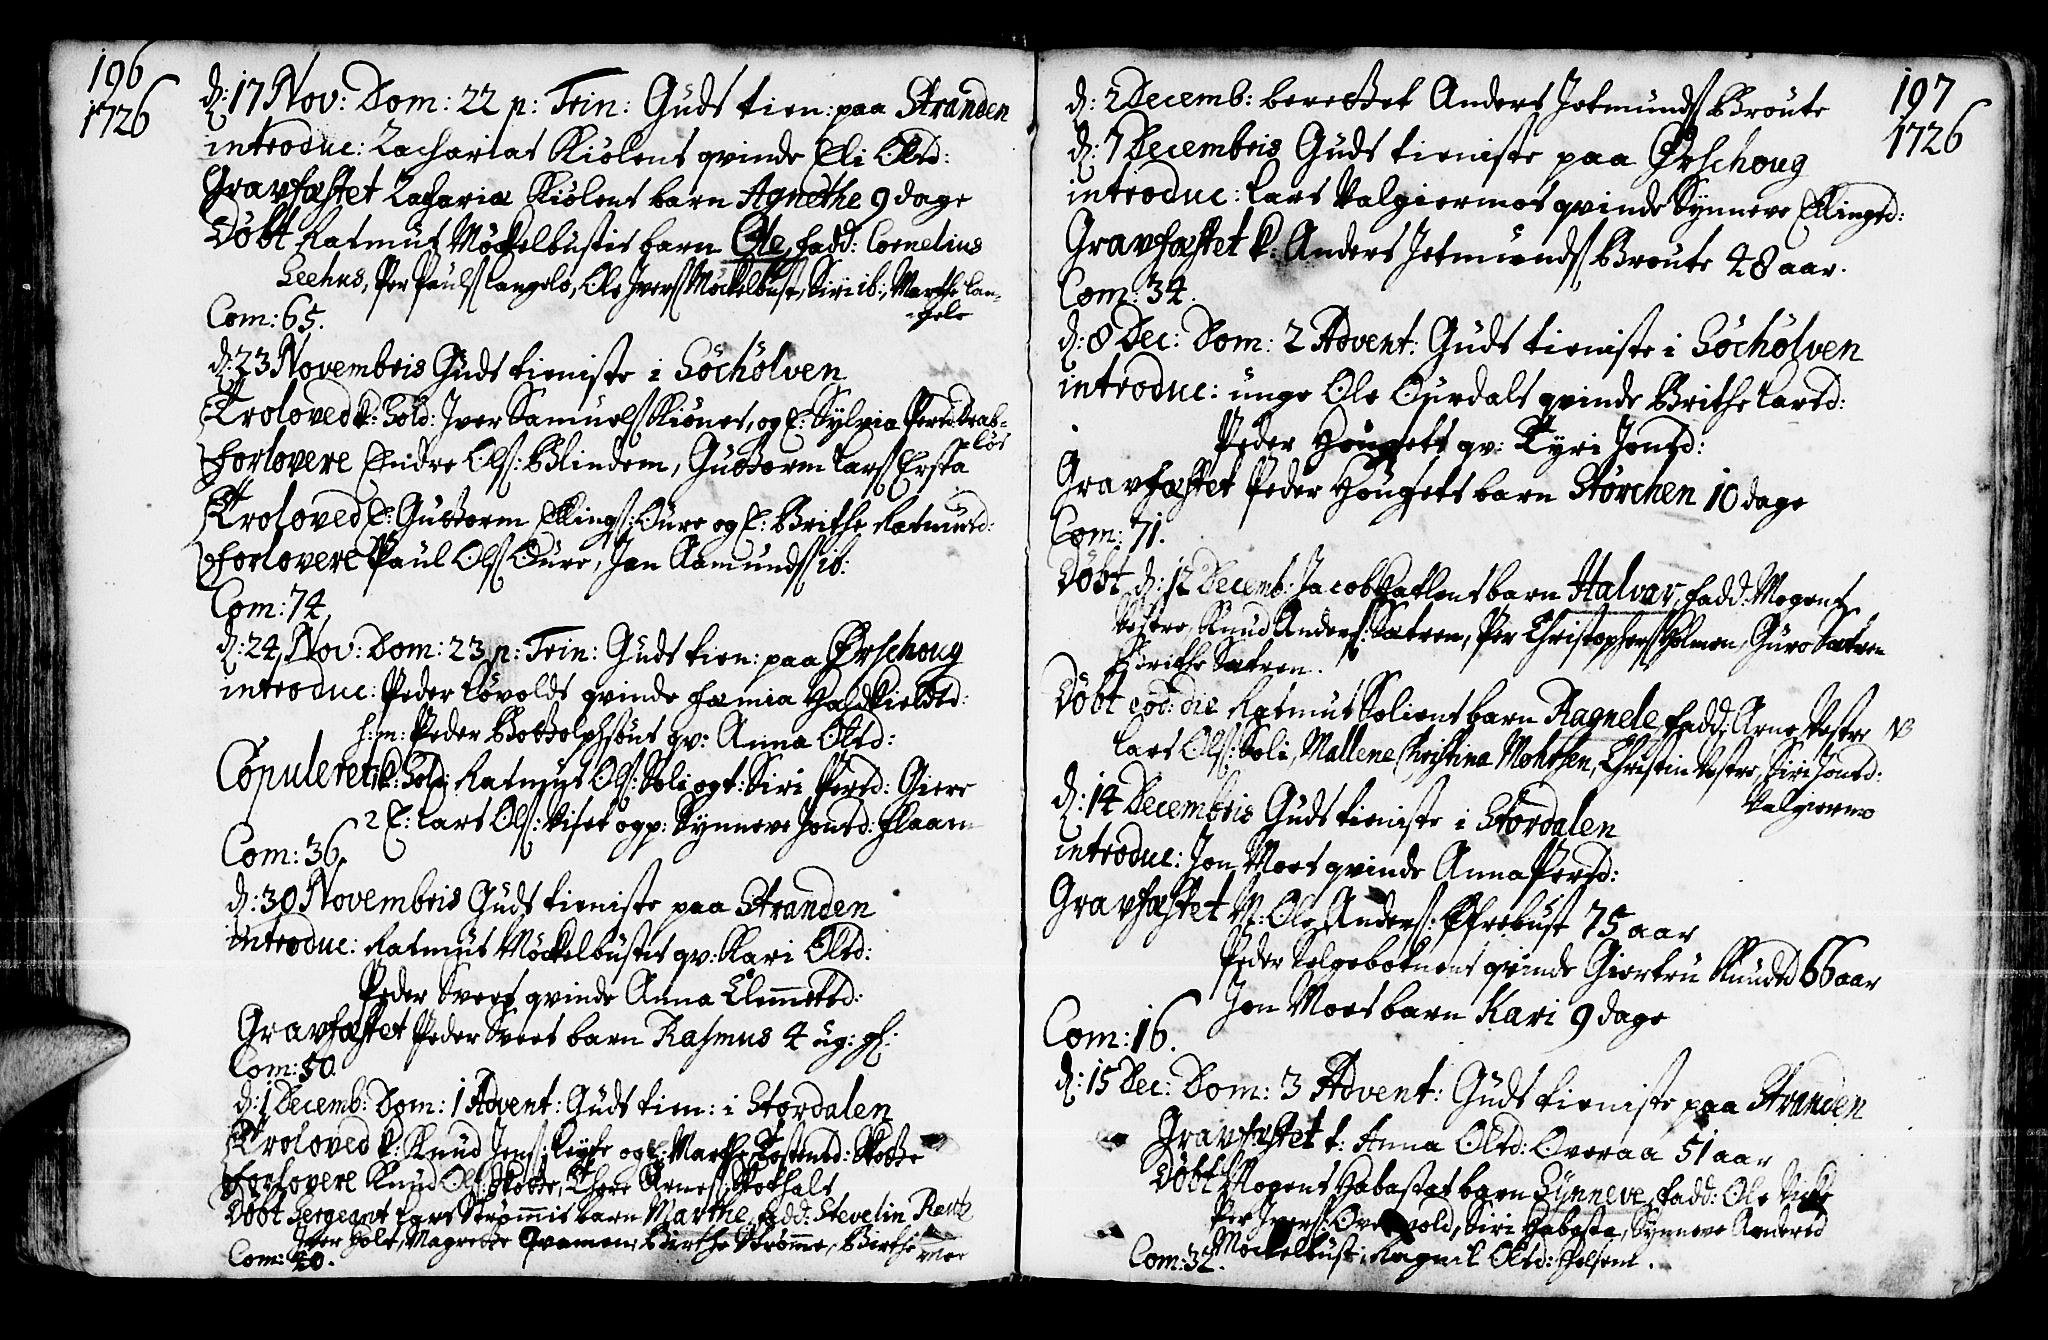 196
1726
d: 17 Nov: Dom: 22 p: Trin: Guds tien: paa Stranden
introduc: Zacharias Kiölens qvinde Eli Olsd:
Gravfæstet Zachariæ Kiölens barn Agnethe 9 dage
Döbt Rasmus Möckelbustis barn Ole, fadd: Cornelius
Leehus, Per Pauls Langelo, Ole Ivers Möckelbust, Siri ib:, Marthe Lan-
-gelo
Com: 65.
d: 23 Novembris Guds tieniste i Söchölven
Troloved k: Sold: Iver Samuels Kiönes, og E: Sylvia Persd Drab-
-løs
Forlovere Endre Ols: Blindem, Guttorm Lars Ersta
Troloved E: Guttorm Ellings: Oure og E: Brithe Rasmusd:
Forlovere Paul Ols Oure, Jon Aamunds ib:
Com: 74.
d: 24 Nov: Dom: 23 p: Trin: Guds tien: paa Ørschoug
introduc: Peder Lövolds qvinde Famia
h: m: Peder Bottolphsöns qv: Anna Olsd:
Copuleret k: Sold: Rasmus Ols: Soli og t: Siri Persd: Giere
2 E: Lars Ols: Viset og p: Synneve Jonsd: Flaaem
Com: 36.
d: 30 Novembris Guds tieniste paa Stranden
introduc: Rasmus Möckelbustis qv: Kari Olsd:
Peder Svees qvinde Anna Clemmetsd:
Gravfæstet Peder Svees barn Rasmus 4 ug: gl:
Com: 50.
d: 1 Decemb: Dom: 1 Advent: Guds tien: i Stordalen
Troloved k: Knud Jens: og E: Marthe Tostensd: Stotte
Forlovere Knud Ols Stotte, Thore Arnes
Döbt Sergeant Lars Strømmis barn Marthe, fadd: Stevelin, Rentz
Iver Holt, Magrethe Qvamen, Birthe Strømme, Birthe
Moe
Com: 40.
197
1726
d: 2 Decemb: berettet Anders Jetmunds Broute
d: 7 Decembris Guds tieniste paa Ørschoug
introduc: Lars Valgiermos qvinde Synneve Ellingsd:
Gravfæstet k: Anders Jetmunds Broute 48 aar.
Com: 34.
d: 8 Dec: Dom: 2 Advent: Guds tieniste i Söchölven
introduc: unge Ole Ourdals qvinde Brithe Larsd:
Peder Hougsets qv: Kyri Jonsd:
Gravfæstet Peder Hougsets barn Störchen 10 dage
Com: 71.
Döbt d: 12 Decemb: Jacob barn Halvar, fadd: Mogens
Vestre, Knud Anders: Sætren, Per Christophers Holmen, Guro Sætren
Brithe Sætren.
Döbt eod: die Rasmus Soliens barn Ragnele, fadd: Arne Vestre NB
Lars Ols: Soli, Mallene Christina Mohrsen, Christin Vestre, Siri Jonsd:
Valgiermo
d: 14 Decembris Guds tieniste i Stordalen
introduc: Jon Moes qvinde Anna Persd:
Gravfæstet M: Ole Anders: Øfrebust 75 aar
Peder qvinde Giertru Knudsd 66 aar
Jon Moes barn Kari 9 dage
Com: 16.
d: 15 Dec: Dom: 3 Advent: Guds tieniste paa Stranden
Gravfæstet t: Anna Olsd: Overaa 51 aar
Döbt Mogens Habostas barn Synneve, fadd: Ole
Per Ivers: Overvold, Siri Habosta, Synneve Andersd
Möckelbust, Ragnil Olsd:
Com: 32.